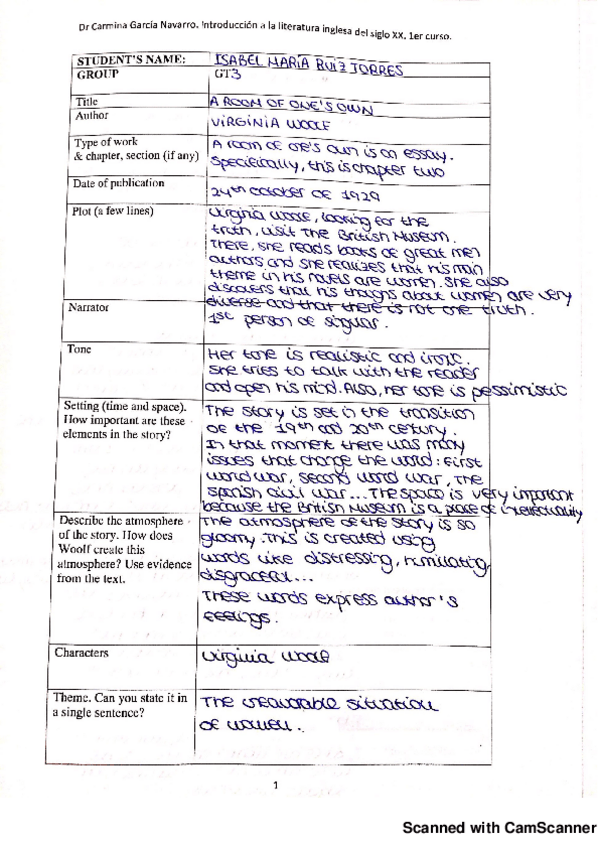 Dr Carmina García Navarro. Introducción a la literatura inglesa del siglo XX. 1er curso.
STUDENT'S NAME: ISABEL MARÍA RUIZ TORRES
GROUP GT3
Title A ROOM OF ONE'S OWN
Author VIRGINIA WOOLF
Type of work A room of one's own is an essay.
& chapter, section (if any) Specifically, this is chapter two
Date of publication 24th october of 1929
Plot (a few lines) Virginia Woolf, looking for the
truth, visit The British Museum.
There, she reads books of great men
authors and she realizes that his main
theme in his novels are women. She also
discovers that his thoughs about women are very
diverse and that there is not one truth.
Narrator 1st person of singular.
Tone Her tone is realistic and ironic.
She tries to talk with the reader
and open his mind. Also, her tone is pessimistic
Setting (time and space). The story is set in the transition
How important are these of the 19th and 20th century.
elements in the story? In that moment there was many
issues that change the world: First
world war, second world war, the
spanish civil war... The space is very important
because the British Museum is a place of intellectuality
Describe the atmosphere The atmosphere of the story is so
of the story. How does gloomy. This is created using
Woolf create this words like distressing, humiliating,
atmosphere? Use evidence disgraceful...
from the text. These words express author's
feelings.
Characters Virginia Woolf
Theme. Can you state it in The situation
a single sentence? of women.
1
Scanned with CamScanner